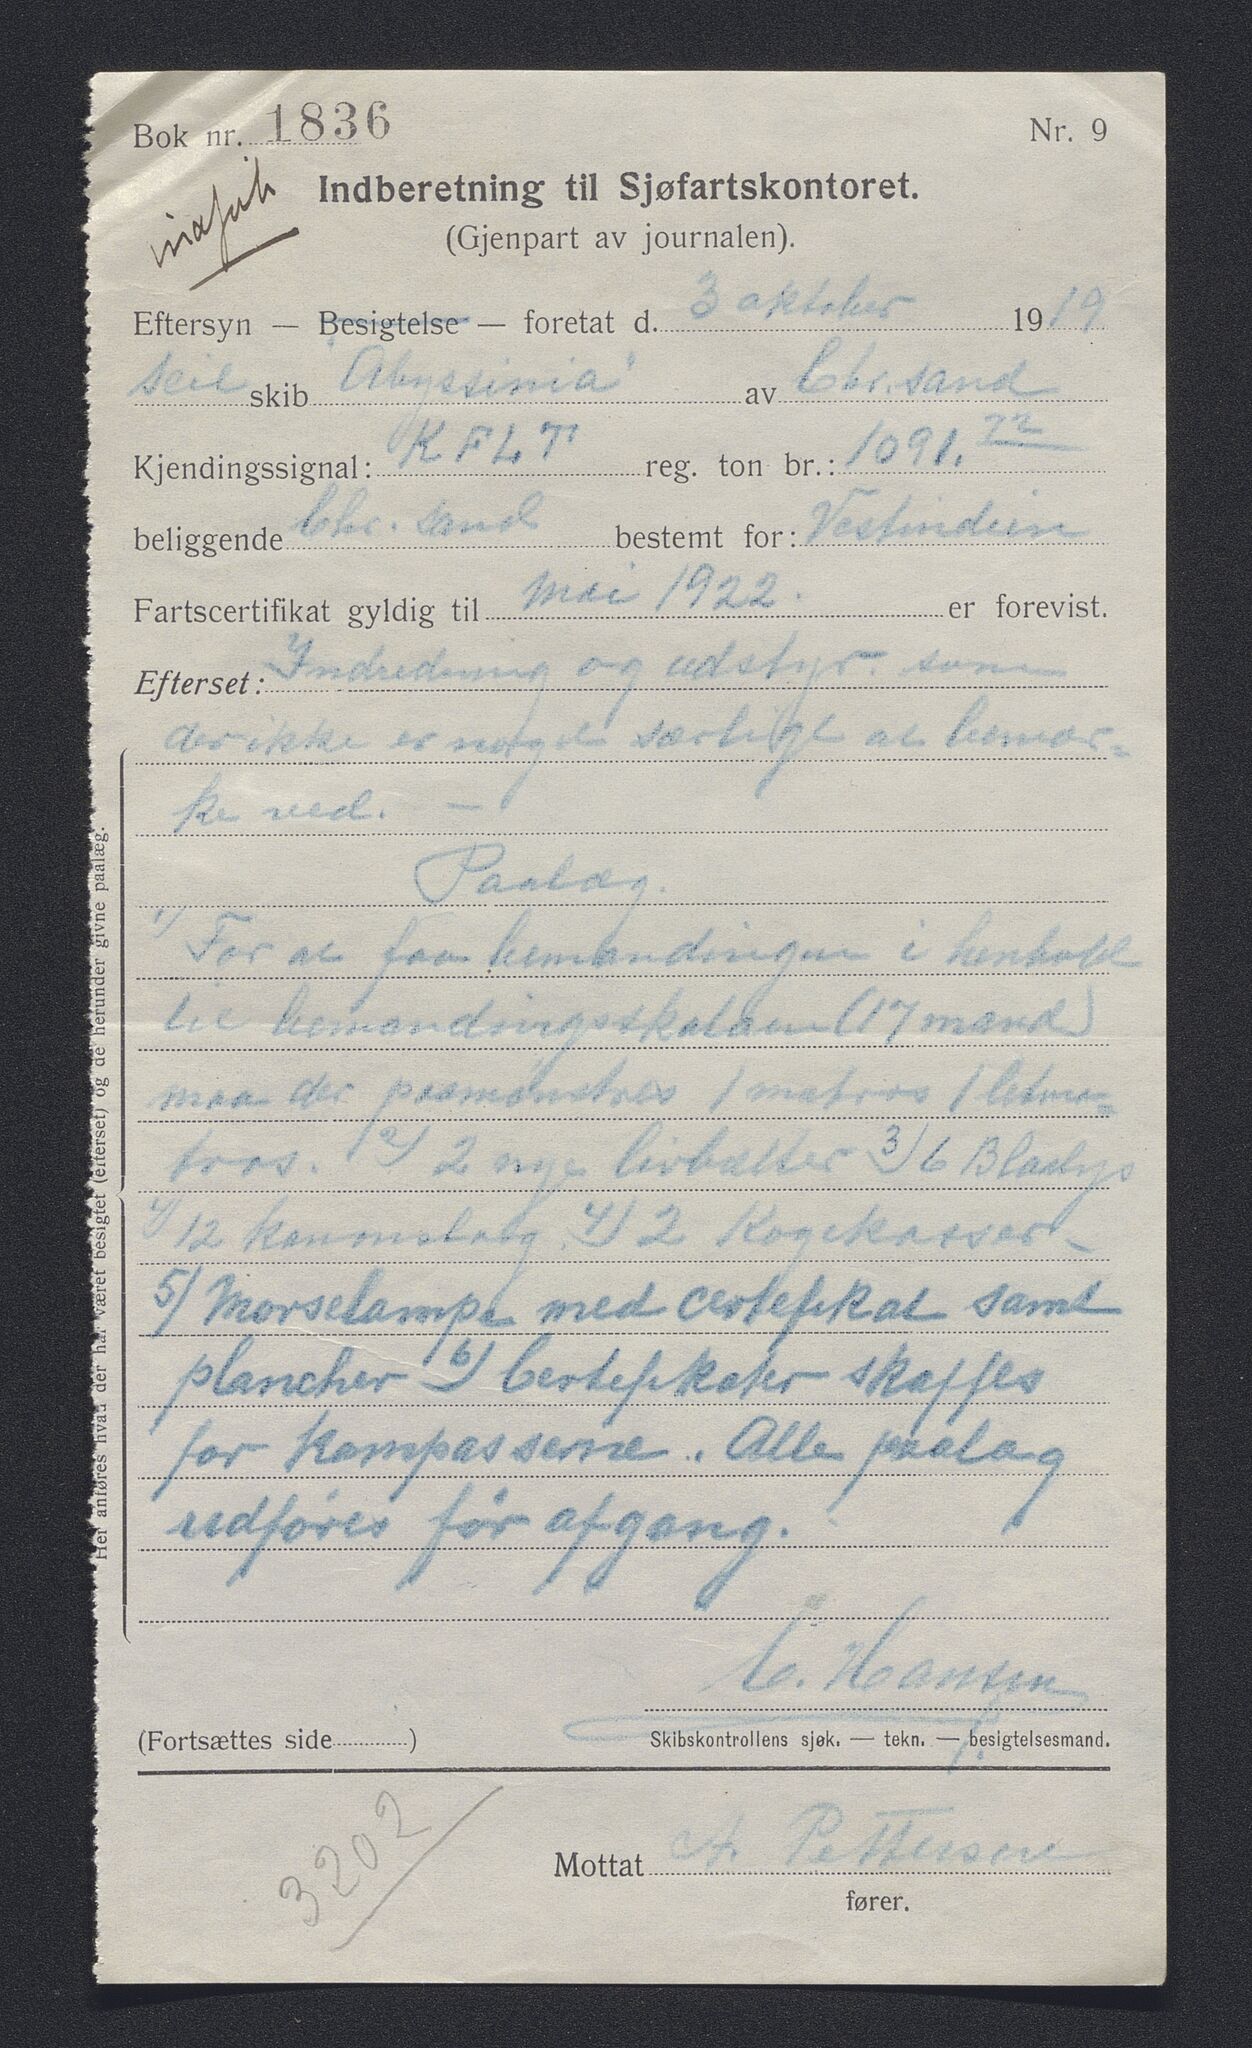 Bok nr. 1836
Nr. 9
Indberetning til Sjøfartskontoret.
(Gjenpart av journalen).
Eftersyn — Besigtelse — foretat d. 3 oktober 1919
Seil skib "Abyssinia" av Chr.sand
Kjendingssignal: K F L T reg. ton br.: 1091.72
beliggende Chr. sand bestemt for: Vestindien
Fartscertifikat gyldig til mai 1922. er forevist.
Efterset: Indredning og udstyr som
der ikke er noget særligt at bemær-
ke ved. —
Paalæg.
1) For at faa bemandingen i henhold
til bemandingsskalaen (17 mand)
maa der paamønstres 1 matros 1 letma-
tros. 2) 2 nye livbælter 3) 6 Blaalys
4) 12 kanonslag. 4) 2 Kogekasser -
5) Morselampe med certefikat samt
plancher 6) Certefikater skaffes
for kompasserne. Alle paalæg
udføres før afgang.
Her anføres hvad der har været besigtet (efterset) og de herunder givne paalæg.
C. Hansen
(Fortsættes side )
Skibskontrollens sjøk. — tekn. — besigtelsesmand.
3202
Mottat A. Pettersen
fører.